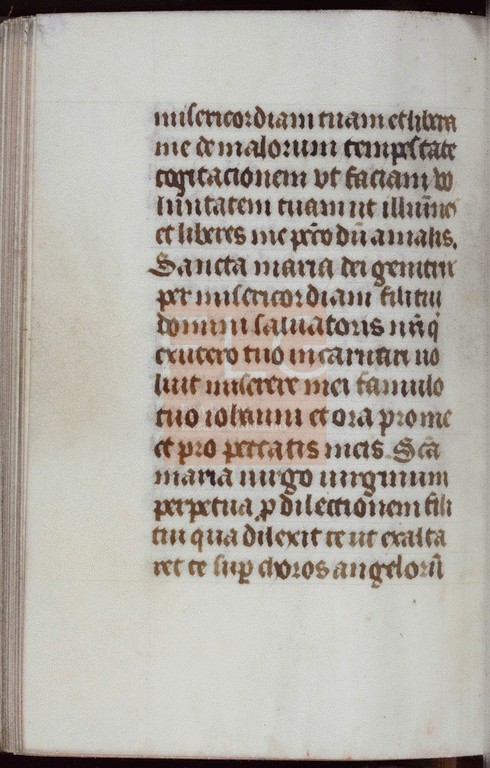 misericordiam tuam et libera
me de malorum tempestate
cogitacionem ut faciam vo
luntatem tuam ut illumines
et liberes me pcō dn̄ a malis.
Sancta maria dei genitrix
per misericordiam filii tui
domini saluatoris nr̄i q̄
ex utero tuo incarnari uo
luit miserere mei famulo
tuo iohanni et ora pro me
et pro peccatis meis. Scā
maria uirgo uirginum
perpetua ꝑ dilectionem fili
tui qua dilexit te ut exalta
ret te suꝑ choros angelorū
FLG